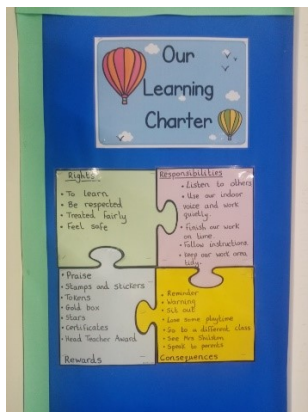 Our
Learning
Charter
Rights
• To learn
• Be respected
• Treated fairly
• Feel safe
Responsibilities
• Listen to others
• Use our indoor
voice and work
quietly.
• Finish our work
on time.
• Follow instructions.
• Keep our work area
tidy.
• Praise
• Stamps and stickers
• Tokens
• Gold box
• Stars
• Certificates
• Head Teacher Award
Rewards
• Reminder
• Warning
• Sit out
• Lose some playtime
• Go to a different class
• See Mrs
• Speak to parents
Consequences